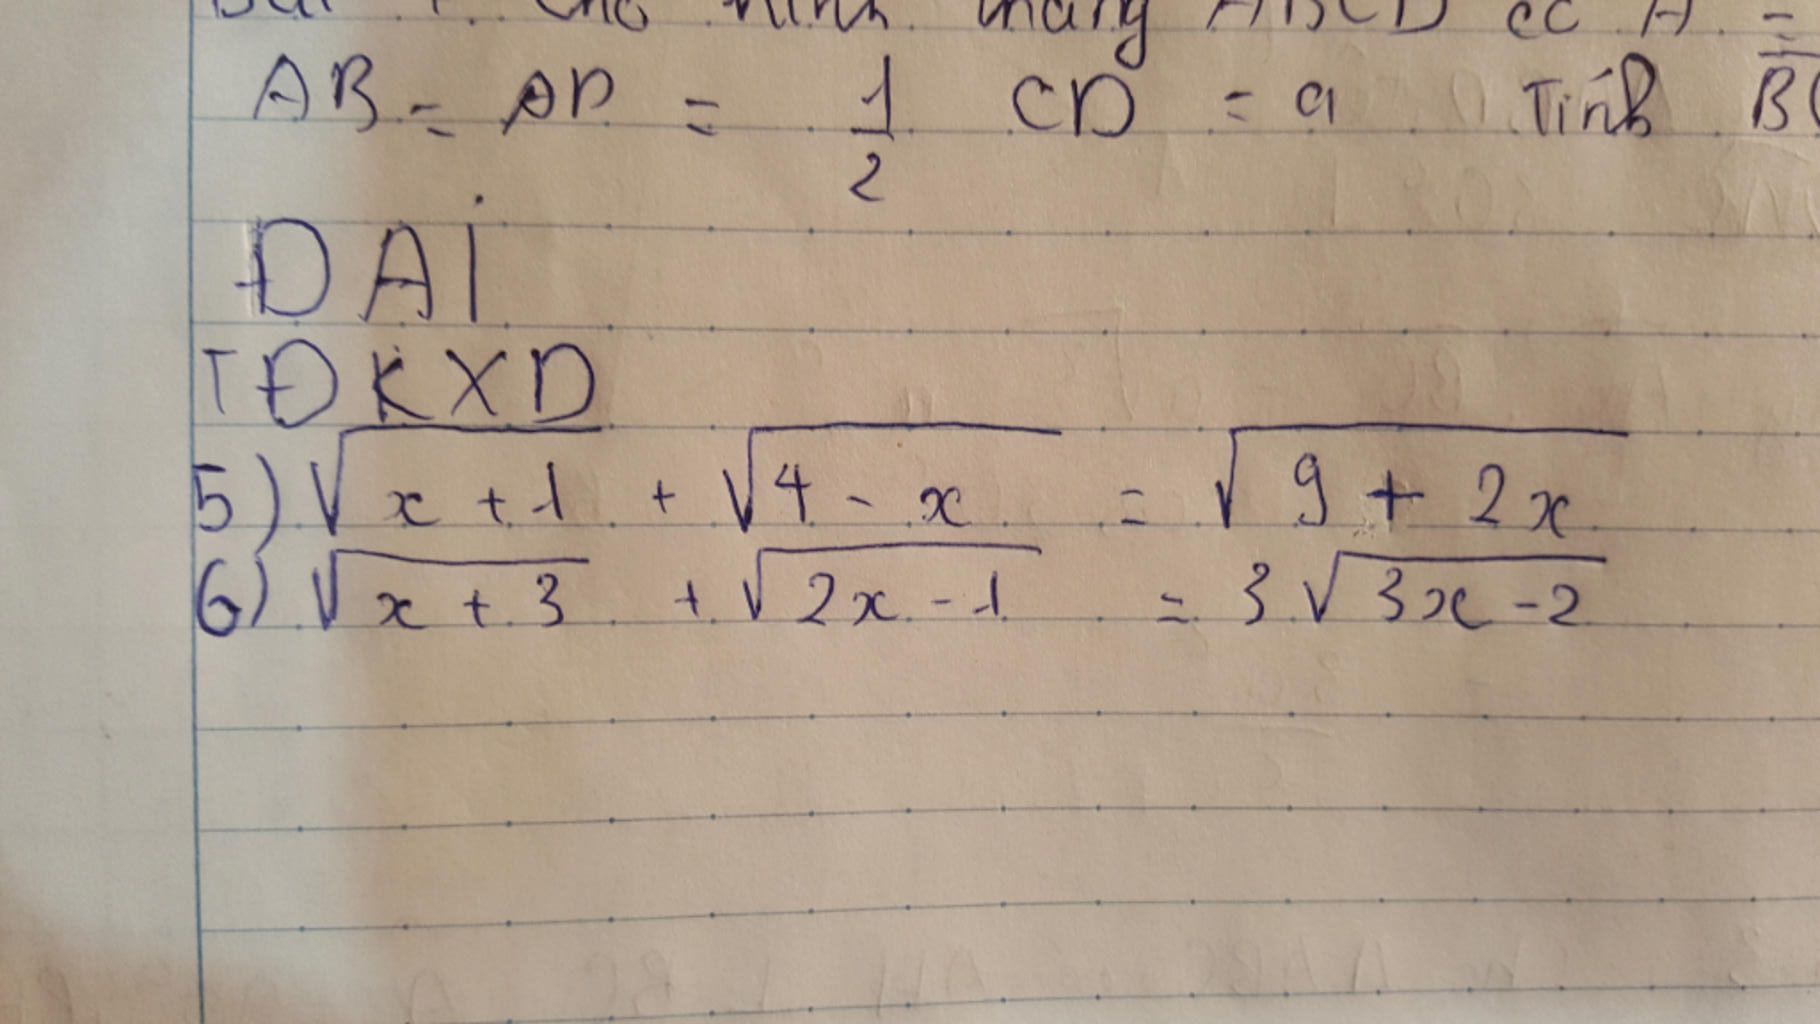 Bài 7. Cho hình thang ABCD có A =
AB = AD = 1/2 CD = a Tính
ĐẠI
TĐKXD
5) √(x + 1) + √(4 - x) = √(9 + 2x)
6) √(x + 3) + √(2x - 1) = 3√(3x - 2)